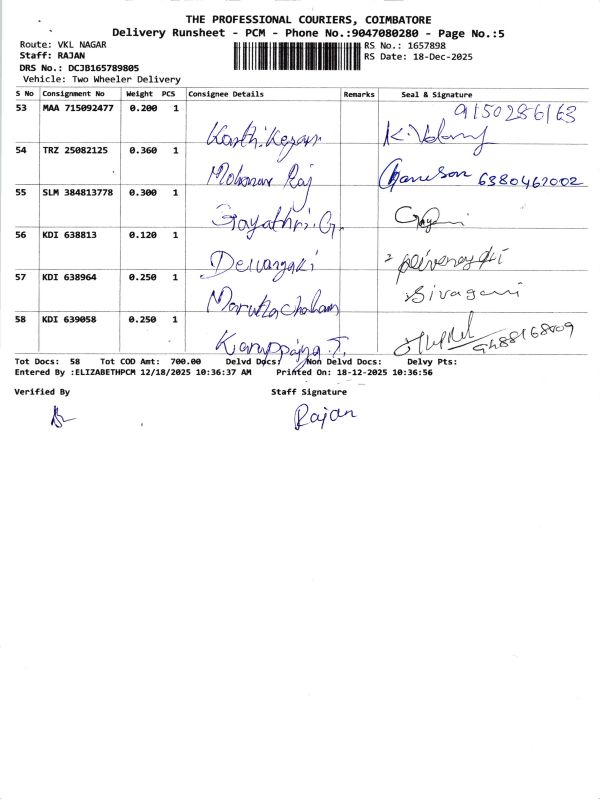 THE PROFESSIONAL COURIERS, COIMBATORE
Delivery Runsheet - PCM - Phone No.:9047080280 - Page No.:5
Route: VKL NAGAR RS No.: 1657898
Staff: RAJAN RS Date: 18-Dec-2025
DRS No.: DCJB165789805
Vehicle: Two Wheeler Delivery
S No Consignment No Weight PCS Consignee Details Remarks Seal & Signature
53 MAA 715092477 0.200 1 9150286163
Karthikeyan
54 TRZ 25082125 0.360 1
Mohanar Raj 6380462002
55 SLM 384813778 0.300 1
Gayathri.G.
56 KDI 638813 0.120 1
57 KDI 638964 0.250 1
Sivagami
58 KDI 639058 0.250 1
Tot Docs: 58 Tot COD Amt: 700.00 Delvd Docs: Non Delvd Docs: Delvy Pts:
Entered By :ELIZABETHPCM 12/18/2025 10:36:37 AM Printed On: 18-12-2025 10:36:56
Verified By Staff Signature
Rajan